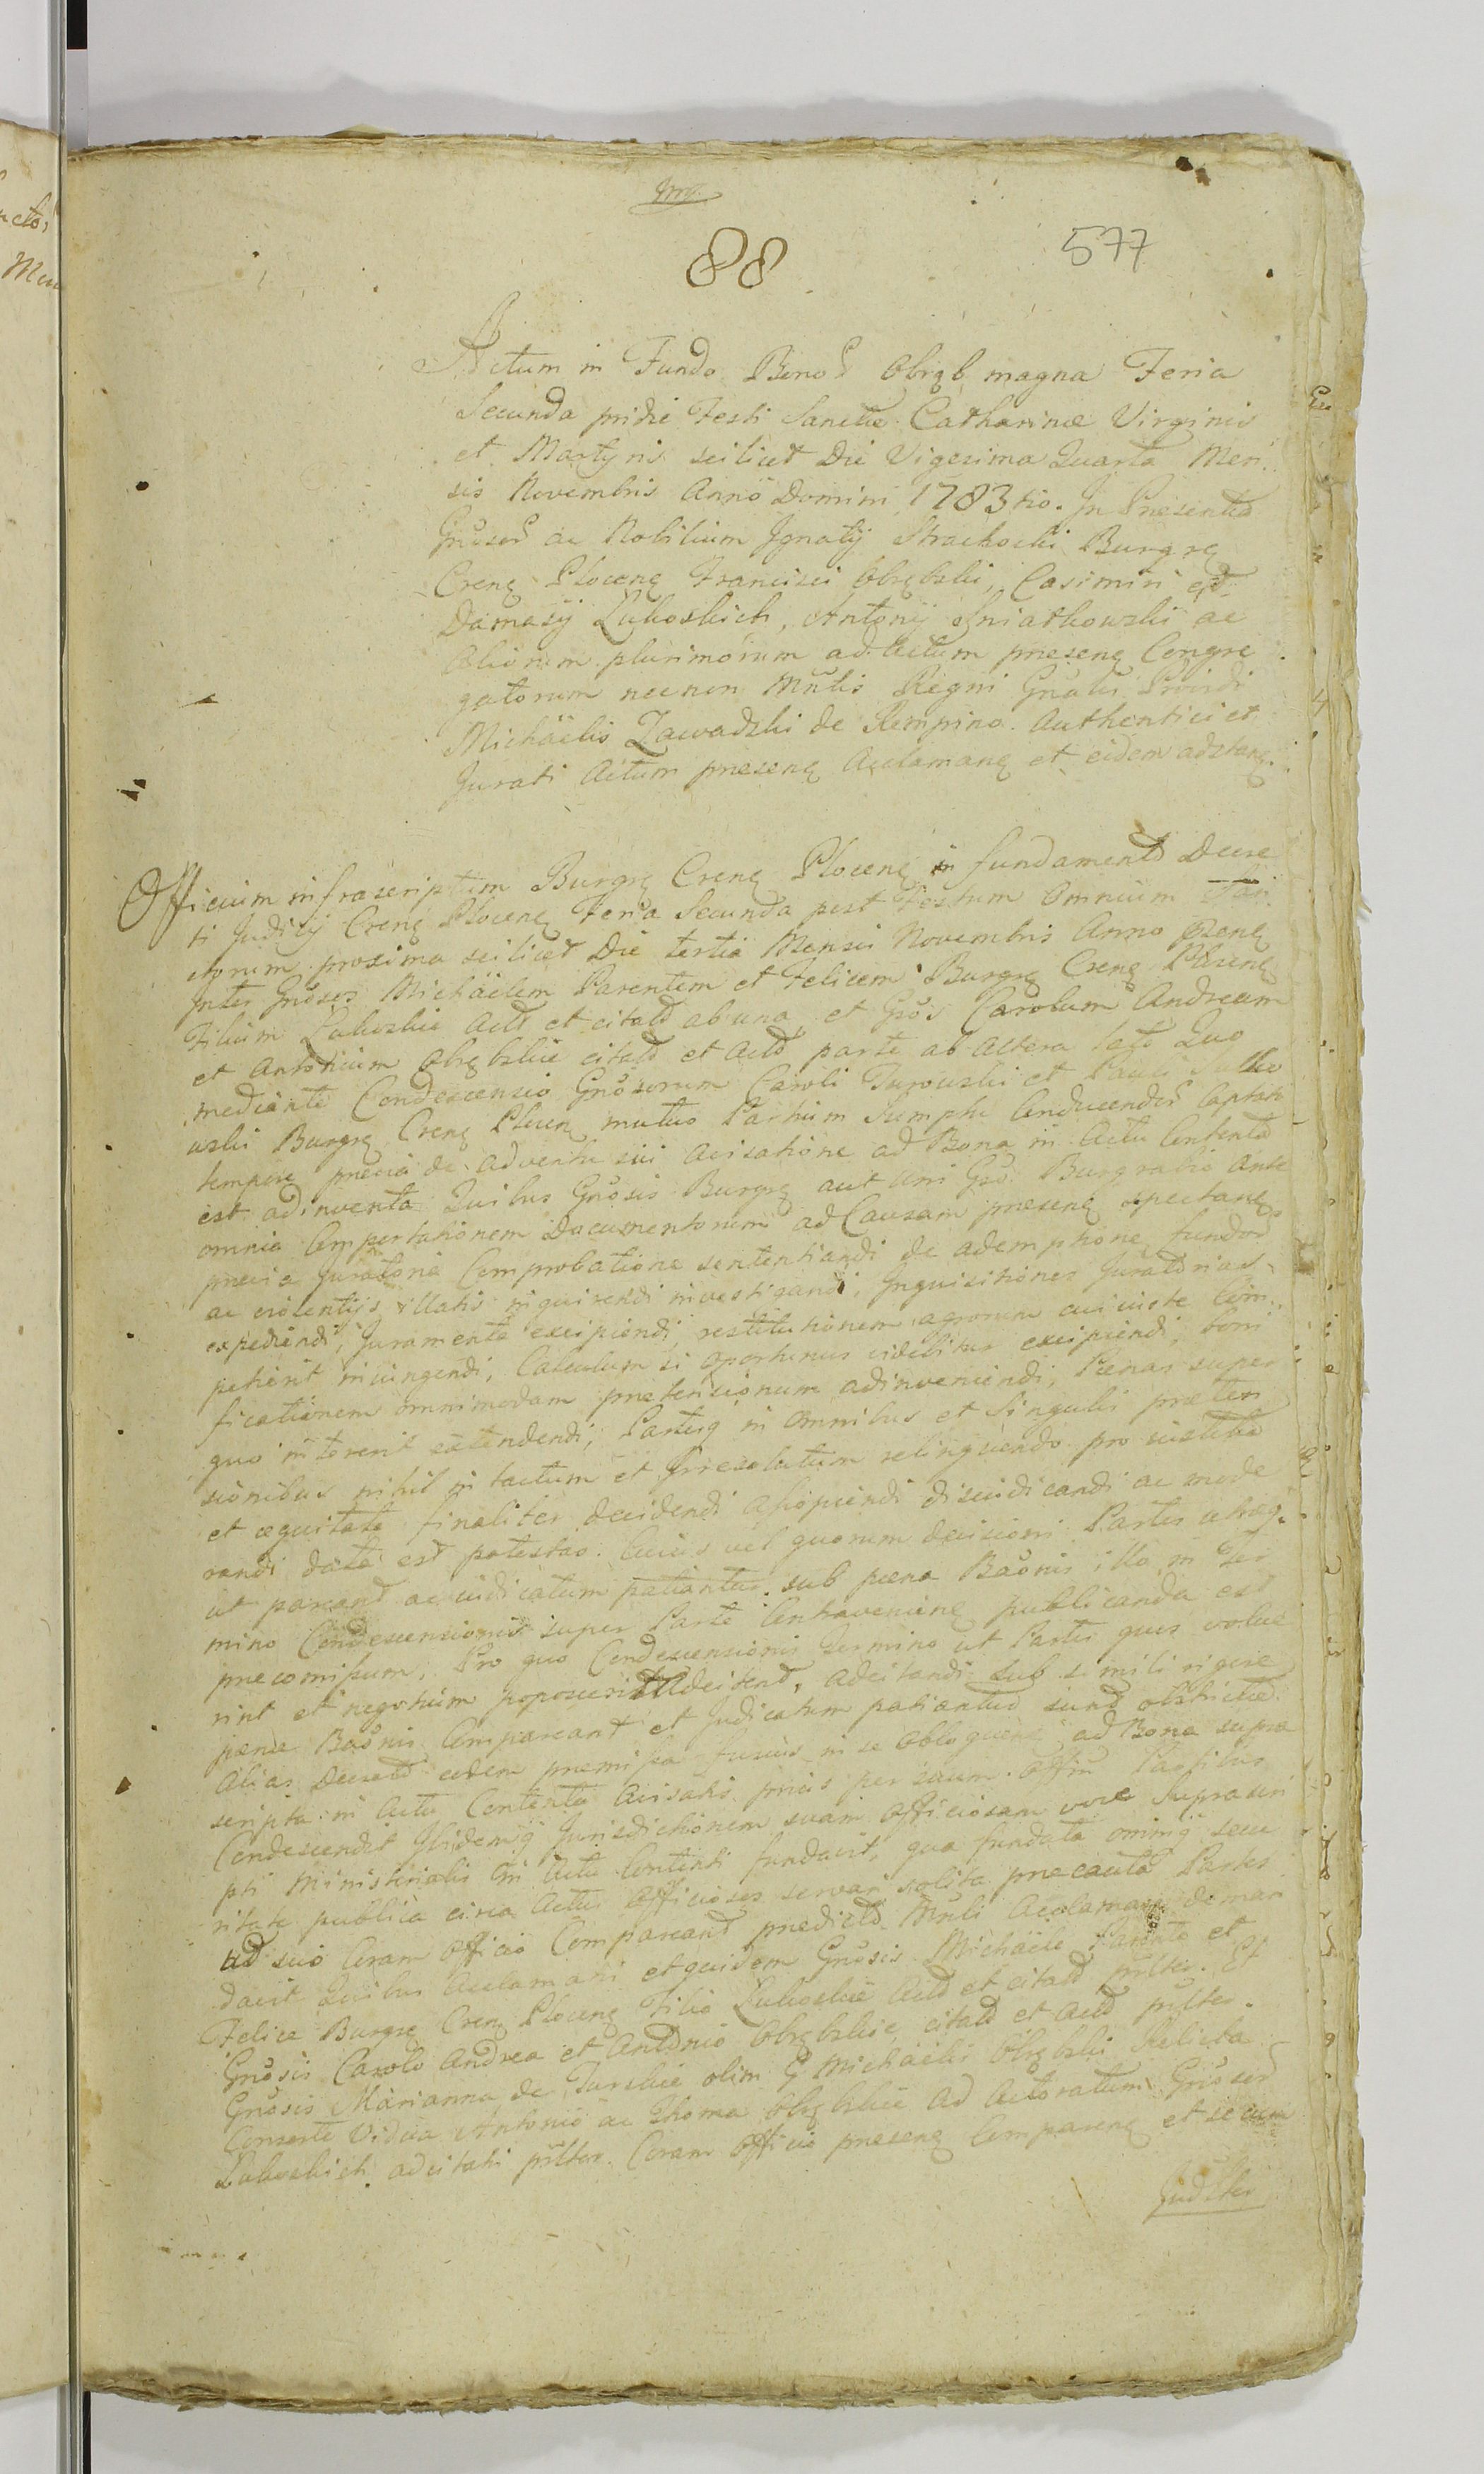 88
577
Actum in Fundo Bonoȓ Obręb magna Feria
Secunda pridie Festi Sanctæ Catharinæ Virginis
et Martyris scilicet Die Vigesima Quarta Men
sis Novembris Anno Domini 1783tio. In Præsentia
Gnosoȓ ac Nobilium Ignatij Strachocki Burgrę
Crenę Plocenę Francisci Obrębski, Casimiri et
Damasij Lukoskich, Antonij Sniatkowski ac
Aliorum plurimorum ad Actum præsenę Congre
gatorum necnon Mnlis Regni Gnalis Providi
Michäelis Zawadzki de Rempino Authentici et
Jurati Actum præsenę Acclamanę et eidem adstanę.
Officium infrascriptum Burgrę Crenę Plocenę in fundamento Decre
ti Judicij Crenę Plocenę Feria Secunda post Festum Omnium San
ctorum proxima scilicet Die tertia Mensis Novembris Anno Præsenę
Inter Gnosos Michäelem Parentem et Felicem Burgrę Crenę Plocenę
Filium Lukoskie Actt et citatt ab una et Gsos Carolum Andream
et Antonium Obrębskie citatt et Actt parte ab altera lati Quo
mediante Condescensio Gnosorum Caroli Turowski et Pauli
wski Burgrę Crenę Plocenę mutuo Partium Sumptu Conducendoȓ Captato
tempore prævia de adventu sui Avisatione ad Bona in Actu Contenta
est adinventa Quibus Gnosis Burgrę aut Uni Gso Burgrabio Ante
omnia Comportationem Documentorum ad Causam præsenę spectanę
prævia Juratoria Comprobatione sententiandi de ademptione fundoȓ
ac violentijs illatis inquirendi investigandi, Inquisitiones Juratorias
expediendi, Juramenta excipiendi, restitutionem agrorum cui iuste Com
petierit iniungendi, Calculum si oportunus videbitur excipiendi, boni
ficationem omnimodam prætensionum adinveniendi, Pænas super
quo interent extendendi, Partesq in Omnibus et Singulis præten
sionibus nihil intactum et Irresolutum relinquendo pro iustitia
et æquitate finaliter decidendi diiudicandi ac mode
randi data est potestas. Cuius vel quorum decisioni Partes utræq.
ut pareant ac iudicatum patiantur sub pæna Baonis illo in Ter
mino Condescensionis super Parte Contravenienę publicanda est
præcomissum. Pro quo Condescensionis Termino ut Partes quos volue
rint et negotium poposcerit Adcitent, adcitandi sub simili rigore
pænæ Baonis Compareant et Judicatum patiantur sunt obstrictæ
alias Decreto eodem præmissa fusius in se obloquenę ad Bona supra
scripta in Actu Contenta Avisatis prius per suum Offm Partibus
Condescendit Ibidemq Jurisdictionem suam Officiosam voce Suprascri
pti Ministerialis in Actu Contenti fundavit, qua fundata omniq secu
ritate publica circa Actus Officiosos servari solita præcauta Partes
ad sui Coram Officio Compareant prædicto Mnli Acclamari deman
davit Quibus Acclamatis et quidem Gnosis Michäele Parente et
Felice Burgrę Crenę Plocenę Filio Lukoskie Actt et citatt psnlter. Et
Gnosis Carolo Andrea et Antonio Obrębskie, citatt et Actt psnlter.
Gnosis Marianna de Turskie olim G Michäelis Obrębski Relicta
Consorte Vidua Antonio ac Thoma Obrębskie Ad Actoratum Gnosoȓ
Lukoskich adcitatis psnlter. Coram Officio præsenę Comparenę et secum